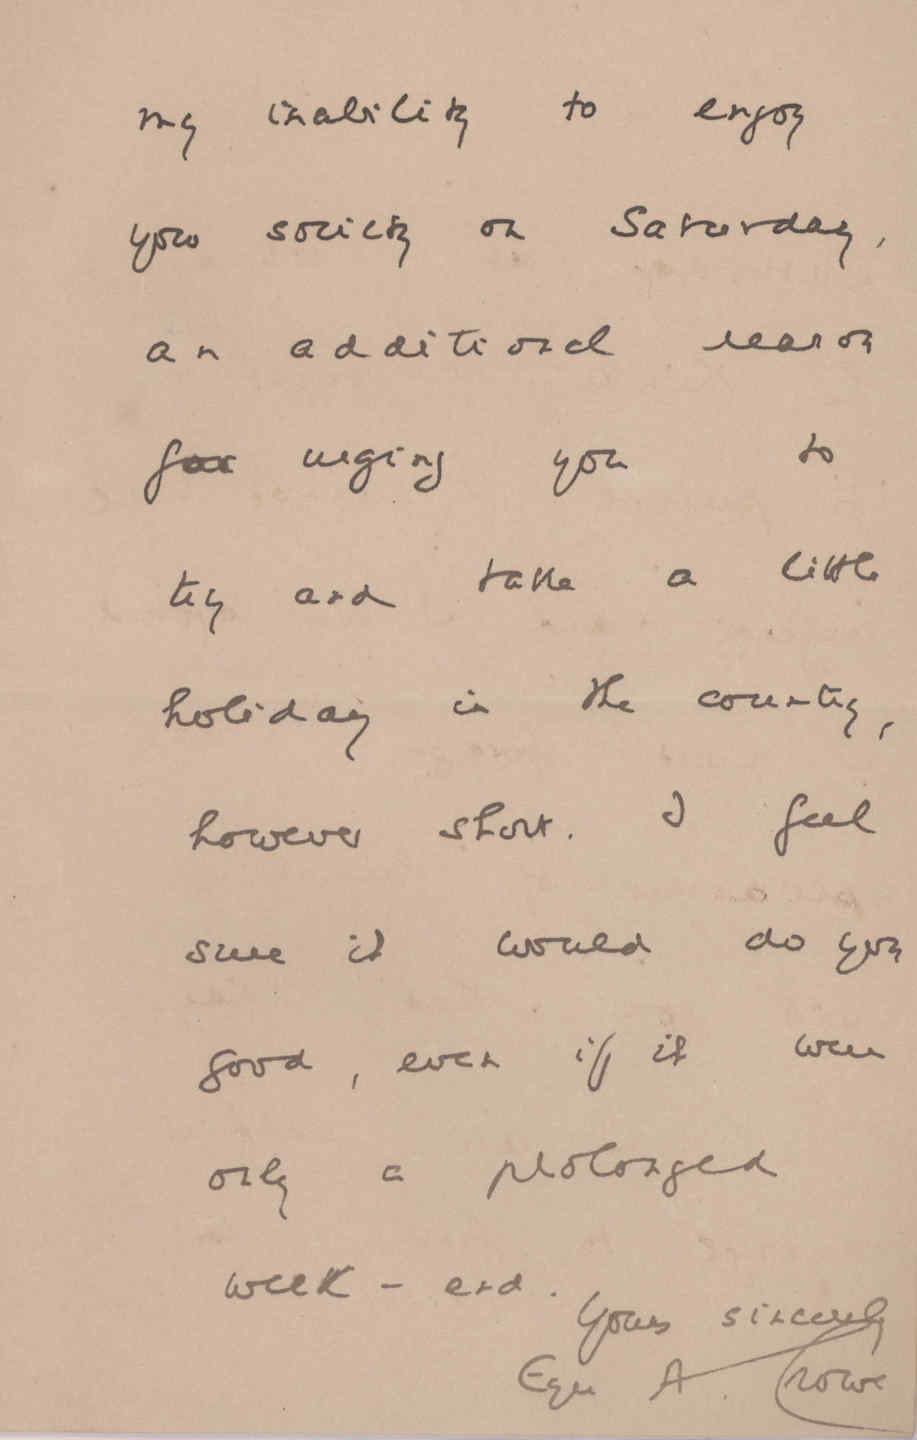 my inability to enjoy
your society on Saturday,
an additional reason
for urging you to
try and take a little
holiday in the country,
however short. I feel
sure it would do you
good, even if it were
only a prolonged
week-end.
Yours sincerely
Eyre A. Crowe